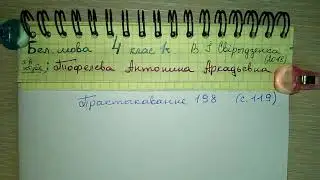 Бел. мова 4 клас 1ч В. I Свірыдзенка
(2018)
Тофелева Антонина Аркадьевна
Практыкаванне 198 (с.119)